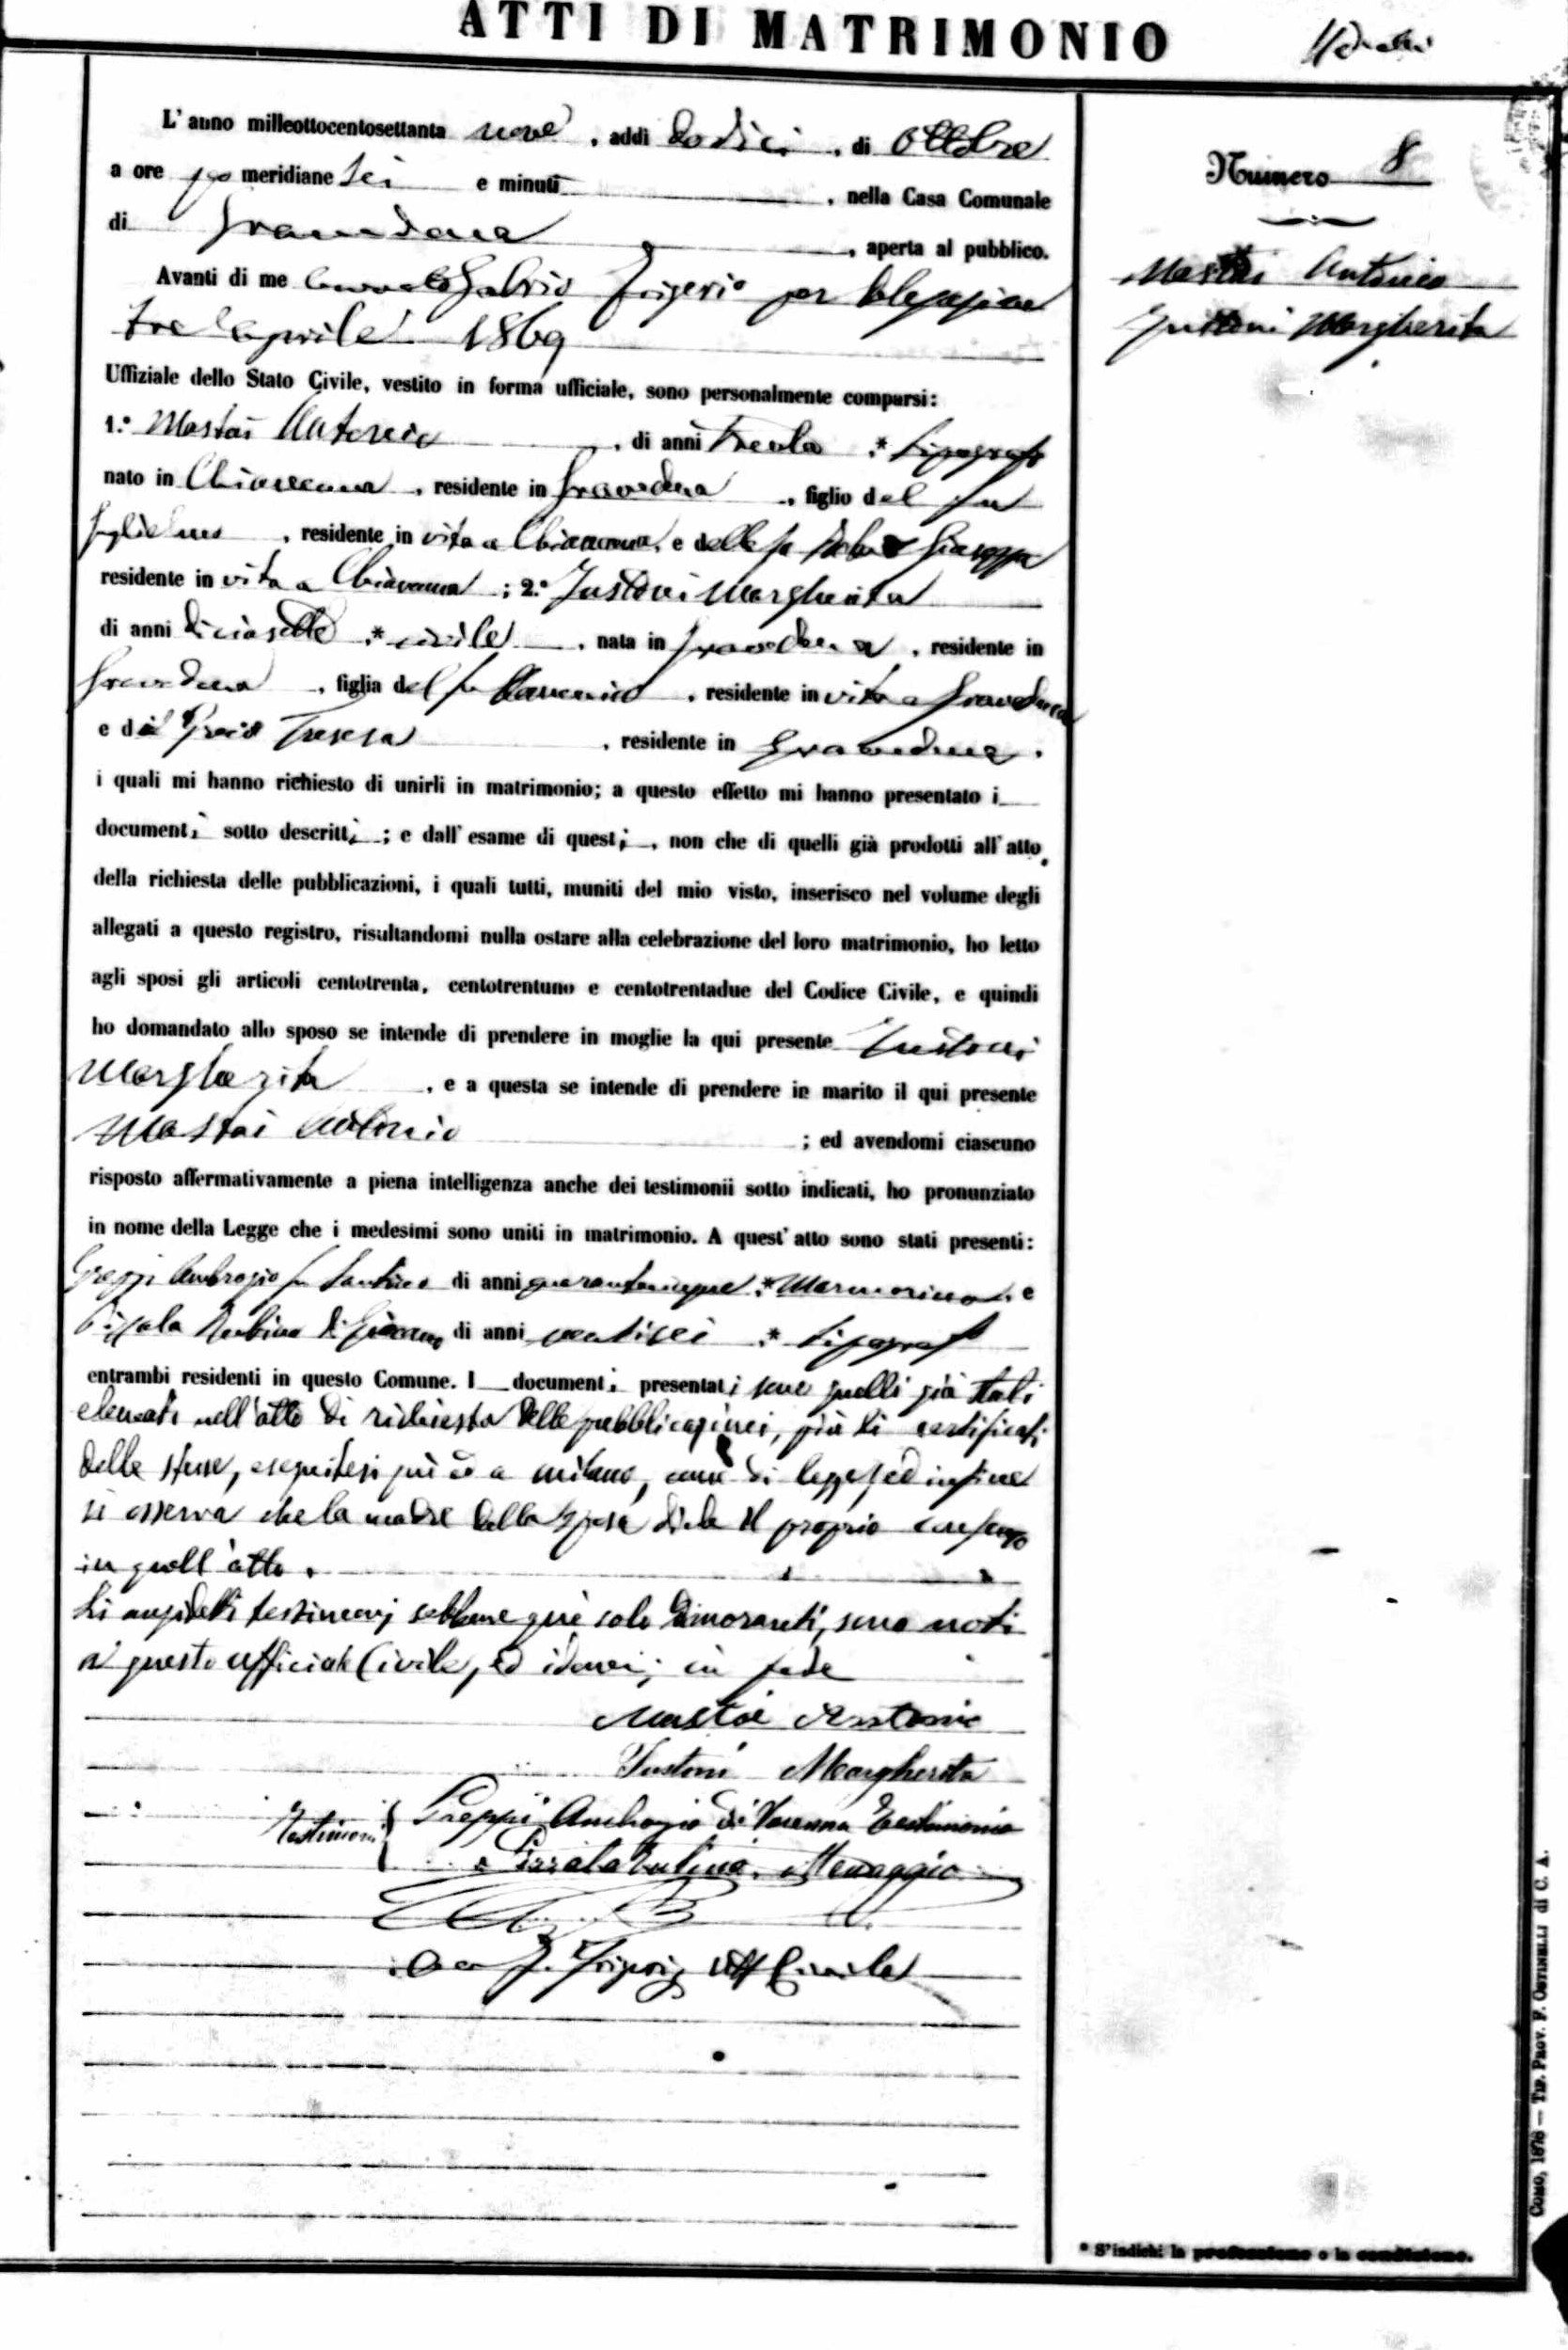 ATTI DI MATRIMONIO
L'anno milleottocentosettanta nove, addì dodici, di Ottobre
a ore po meridiane sei e minuti, nella Casa Comunale
di Gravedona, aperta al pubblico.
Avanti di me Gabrio Frigerio per delegazione
tre aprile 1869
Uffiziale dello Stato Civile, vestito in forma ufficiale, sono personalmente comparsi:
1.° Mastai Antonio, di anni trenta * tipografo
nato in Chiavenna, residente in Gravedona, figlio del fu
Guglielmo, residente in vita a Chiavenna, e della fu Giuseppa
residente in vita a Chiavenna; 2.° Tustoni Margherita
di anni diciasette * civile, nata in Gravedona, residente in
Gravedona, figlia del fu, residente in vita a Gravedona
e di Teresa, residente in Gravedona.
i quali mi hanno richiesto di unirli in matrimonio; a questo effetto mi hanno presentato i
documenti sotto descritti; e dall'esame di questi, non che di quelli già prodotti all'atto
della richiesta delle pubblicazioni, i quali tutti, muniti del mio visto, inserisco nel volume degli
allegati a questo registro, risultandomi nulla ostare alla celebrazione del loro matrimonio, ho letto
agli sposi gli articoli centotrenta, centotrentuno e centotrentadue del Codice Civile, e quindi
ho domandato allo sposo se intende di prendere in moglie la qui presente Tustoni
Margherita, e a questa se intende di prendere in marito il qui presente
Mastai Antonio; ed avendomi ciascuno
risposto affermativamente a piena intelligenza anche dei testimonii sotto indicati, ho pronunziato
in nome della Legge che i medesimi sono uniti in matrimonio. A quest'atto sono stati presenti:
Greppi Ambrogio fu Santino di anni quarantacinque * Marmorino, e
di Giovanni di anni ventisei * tipografo
entrambi residenti in questo Comune. I documenti presentati sono quelli già stati
elencati nell'atto di richiesta delle pubblicazioni, più li certificati
delle stesse, eseguitesi quì ed a Milano, come di legge, ed infine
si osserva che la madre della sposa diede il proprio consenso
in quell'atto.
Li anzidetti testimonj sebbene quì solo dimoranti, sono noti
a questo ufficiale Civile, ed idonei; in fede
Mastai Antonio
Tustoni Margherita
Testimoni { Greppi Ambrogio di Varenna Testimonio
Menaggio
Frigerio Uff Civile
Numero 8
Mastai Antonio
Tustoni Margherita
* S'indichi la professione o la condizione.
Como, 1878 — Tip. Prov. F. Ostinelli di C. A.